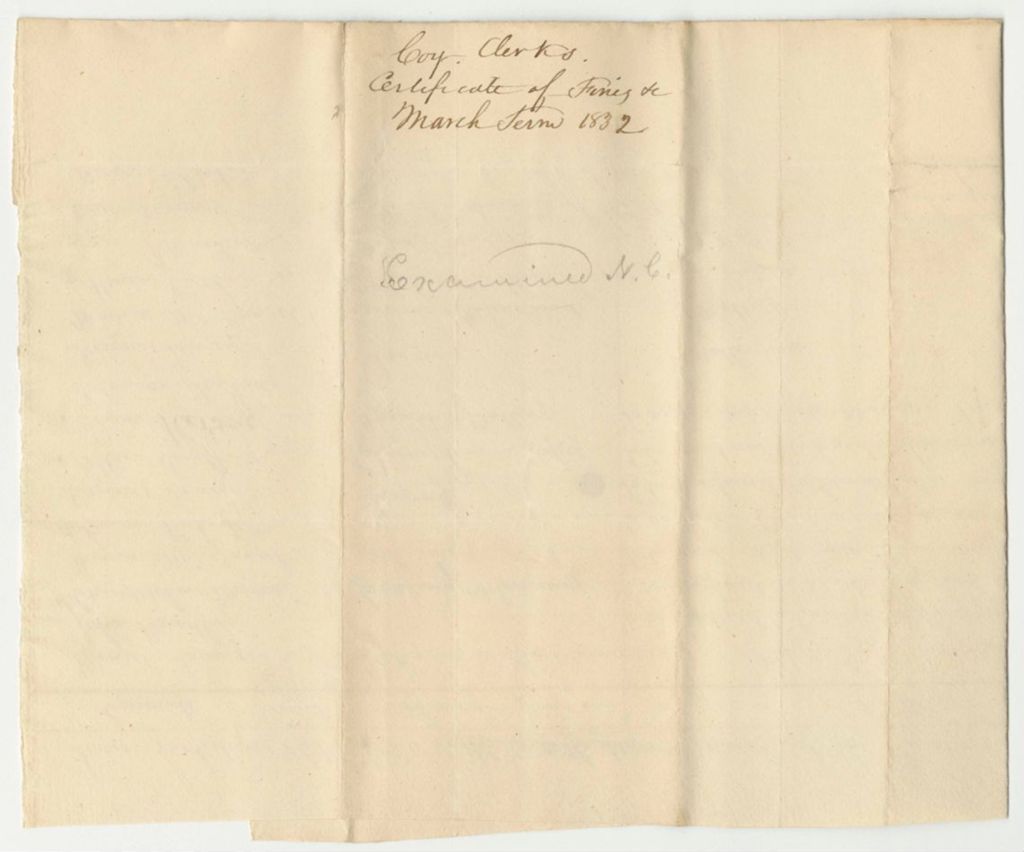 Coy. Clerks.
Certificate of Fines &c
March Term 1832
Examined N.C.